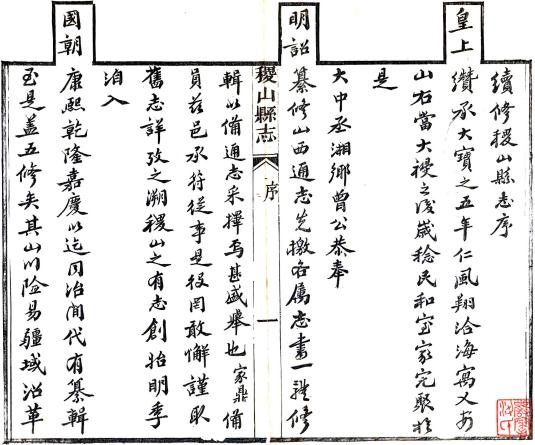 續修稷山縣志序
皇上
纘承大寶之五年仁風翔洽海寓乂安
山右當大祲之後歲稔民和室家完聚於
是
大中丞湘鄉曾公恭奉
明詔
纂修山西通志先檄各屬志書一體修
稷山縣志
序
一
輯以備通志采擇焉甚盛舉也家鼎備
員茲邑承符從事是役罔敢懈謹取
舊志詳攷之溯稷山之有志創始明季
洎入
國朝
康熙乾隆嘉慶以迄同治間代有纂輯
至是蓋五修矣其山川險易疆域沿革